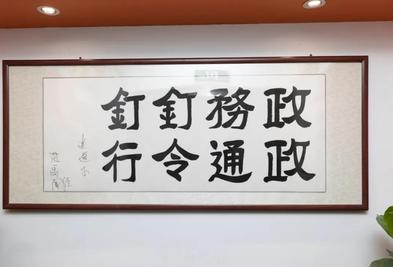 政務釘釘
政通令行